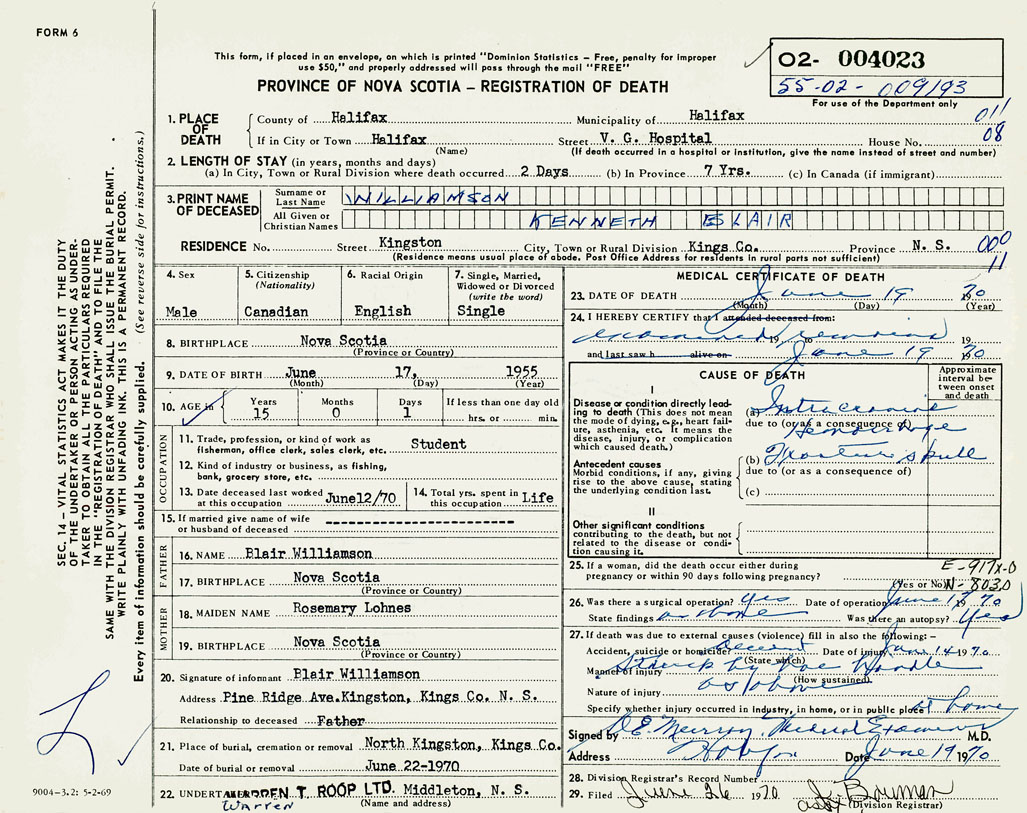 FORM 6
This form, if placed in an envelope, on which is printed "Dominion Statistics – Free, penalty for improper
use $50," and properly addressed will pass through the mail "FREE"
PROVINCE OF NOVA SCOTIA – REGISTRATION OF DEATH
02- 004023
55-02-009193
For use of the Department only
1. PLACE OF DEATH
County of Halifax Municipality of Halifax 011
If in City or Town Halifax Street V. G. Hospital House No. 08
(Name) (If death occurred in a hospital or institution, give the name instead of street and number)
2. LENGTH OF STAY (in years, months and days)
(a) In City, Town or Rural Division where death occurred 2 Days (b) In Province 7 Yrs. (c) In Canada (if immigrant)
3. PRINT NAME OF DECEASED
Surname or Last Name WILLIAMSON
All Given or Christian Names KENNETH BLAIR
RESIDENCE No. Street Kingston City, Town or Rural Division Kings Co. Province N. S. 000
(Residence means usual place of abode. Post Office Address for residents in rural parts not sufficient) 11
4. Sex
Male
5. Citizenship
(Nationality)
Canadian
6. Racial Origin
English
7. Single, Married,
Widowed or Divorced
(write the word)
Single
8. BIRTHPLACE Nova Scotia
(Province or Country)
9. DATE OF BIRTH June 17, 1955
(Month) (Day) (Year)
10. AGE in
Years Months Days If less than one day old
15 0 1 hrs. or min.
OCCUPATION
11. Trade, profession, or kind of work as
fisherman, office clerk, sales clerk, etc. Student
12. Kind of industry or business, as fishing,
bank, grocery store, etc.
13. Date deceased last worked
at this occupation June12/70
14. Total yrs. spent in
this occupation Life
15. If married give name of wife
or husband of deceased
FATHER
16. NAME Blair Williamson
17. BIRTHPLACE Nova Scotia
(Province or Country)
MOTHER
18. MAIDEN NAME Rosemary Lohnes
19. BIRTHPLACE Nova Scotia
(Province or Country)
20. Signature of informant Blair Williamson
Address Pine Ridge Ave.Kingston, Kings Co. N. S.
Relationship to deceased Father
21. Place of burial, cremation or removal North Kingston, Kings Co.
Date of burial or removal June 22-1970
22. UNDERTAKER T. ROOP LTD. Middleton, N. S.
Warren (Name and address)
MEDICAL CERTIFICATE OF DEATH
23. DATE OF DEATH June 19 1970
(Month) (Day) (Year)
24. I HEREBY CERTIFY that I attended deceased from:
examined remains 19 to 19
and last saw h alive on June 19 1970
CAUSE OF DEATH
Approximate interval between onset and death
I
Disease or condition directly leading to death (This does not mean the mode of dying, e.g., heart failure, asthenia, etc. It means the disease, injury, or complication which caused death.)
(a) Intracranial
due to (or as a consequence of)
Hemorrhage
Antecedent causes
Morbid conditions, if any, giving rise to the above cause, stating the underlying condition last.
(b) Fracture skull
due to (or as a consequence of)
(c)
II
Other significant conditions
contributing to the death, but not related to the disease or condition causing it.
25. If a woman, did the death occur either during
pregnancy or within 90 days following pregnancy?
(Yes or No)
E-917X-0
N-803.0
26. Was there a surgical operation? Yes Date of operation June 17 1970
State findings as above Was there an autopsy? Yes
27. If death was due to external causes (violence) fill in also the following: –
Accident, suicide or homicide? accident Date of injury June 14 1970
(State which)
Manner of injury Struck by
(How sustained)
Nature of injury as above
Specify whether injury occurred in industry, in home, or in public place at home
Signed by Medical Examiner M.D.
Address Date June 19 1970
28. Division Registrar's Record Number
29. Filed June 26 1970
(Division Registrar)
SEC. 14 – VITAL STATISTICS ACT MAKES IT THE DUTY
OF THE UNDERTAKER OR PERSON ACTING AS UNDER-
TAKER TO OBTAIN ALL THE PARTICULARS REQUIRED
IN THE "REGISTRATION OF DEATH" AND TO FILE THE
SAME WITH THE DIVISION REGISTRAR WHO SHALL ISSUE THE BURIAL PERMIT.
WRITE PLAINLY WITH UNFADING INK. THIS IS A PERMANENT RECORD.
Every item of information should be carefully supplied. (See reverse side for instructions.)
9004-3.2: 5-2-69